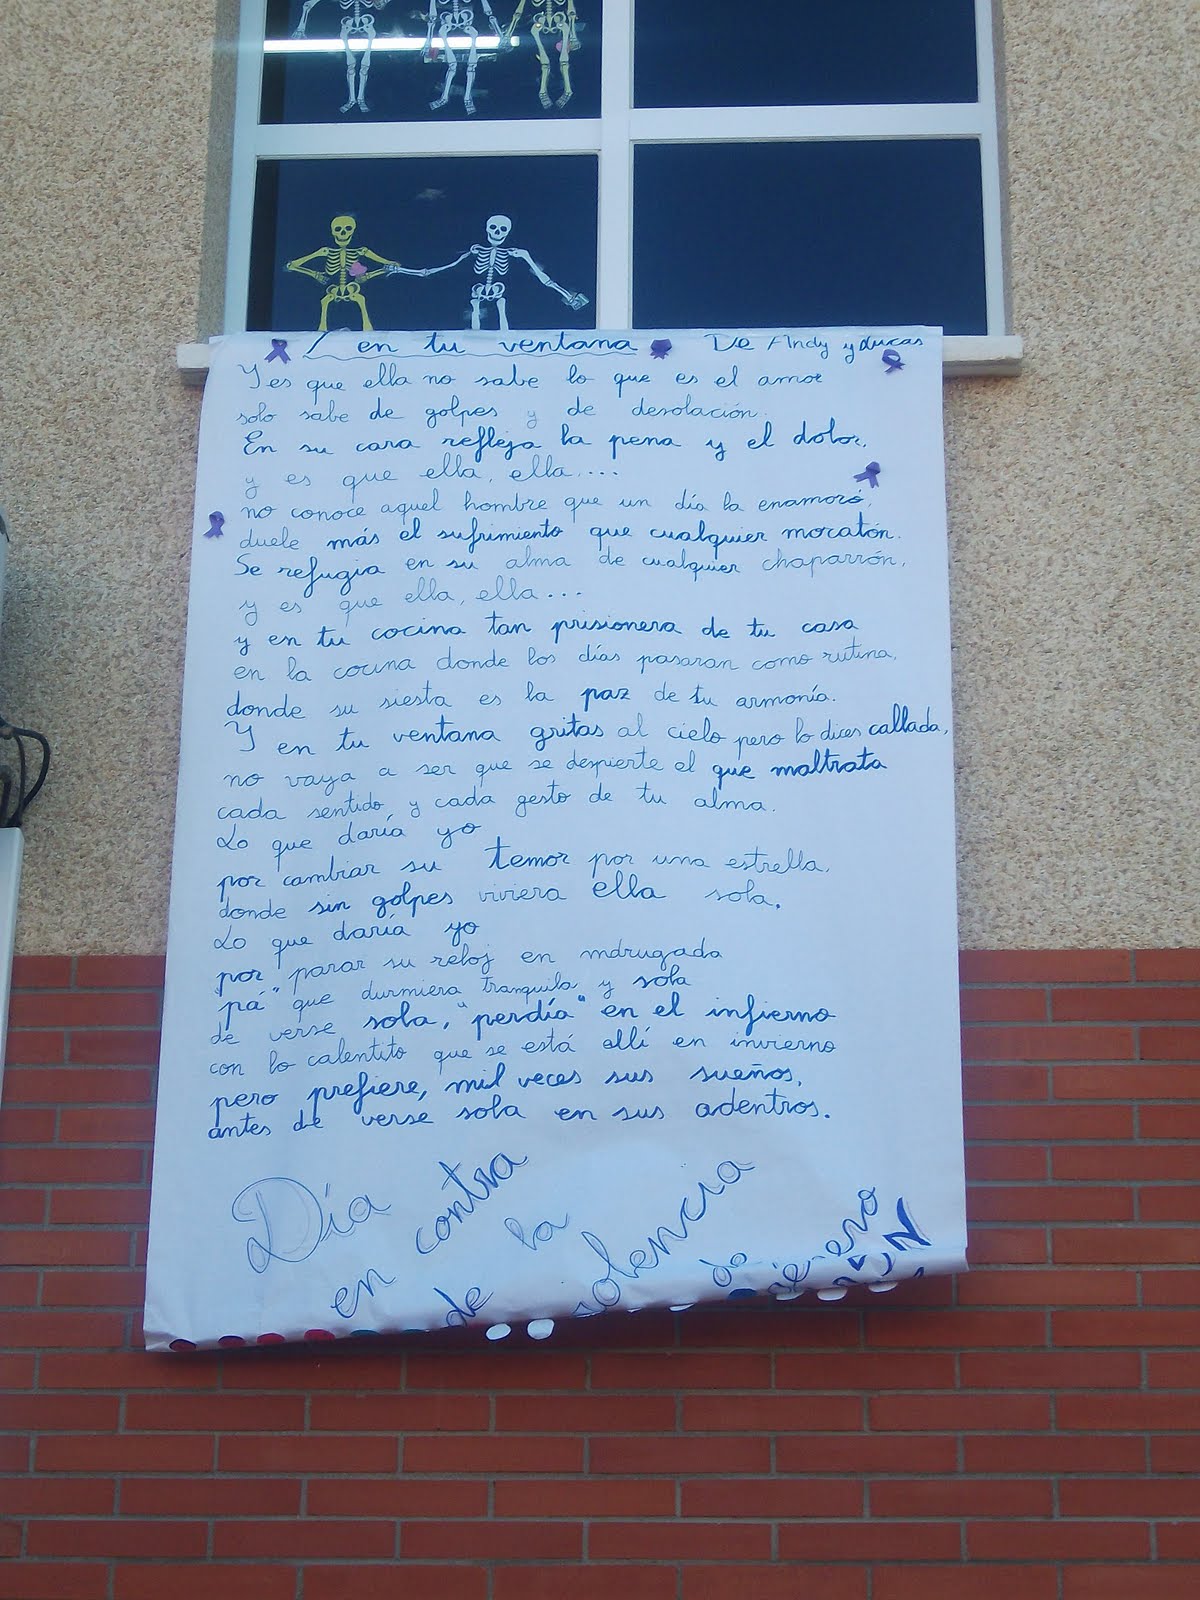 Y en tu ventana De Andy y Lucas
Y es que ella no sabe lo que es el amor
solo sabe de golpes y de desolación.
En su cara refleja la pena y el dolor,
y es que ella, ella....
no conoce aquel hombre que un día la enamoró,
duele más el sufrimiento que cualquier moratón.
Se refugia en su alma de cualquier chaparrón,
y es que ella, ella...
y en tu cocina tan prisionera de tu casa
en la cocina donde los días pasaran como rutina,
donde su siesta es la paz de tu armonía.
Y en tu ventana gritas al cielo pero lo dices callada,
no vaya a ser que se despierte el que maltrata
cada sentido y cada gesto de tu alma.
Lo que daría yo
por cambiar su temor por una estrella,
donde sin golpes viviera ella sola.
Lo que daría yo
por parar su reloj en mdrugada
"pá" que durmiera tranquila y sola
de verse sola, "perdía" en el infierno
con lo calentito que se está allí en invierno
pero prefiere, mil veces sus sueños,
antes de verse sola en sus adentros.
Día
en contra
de la
violencia
de
género